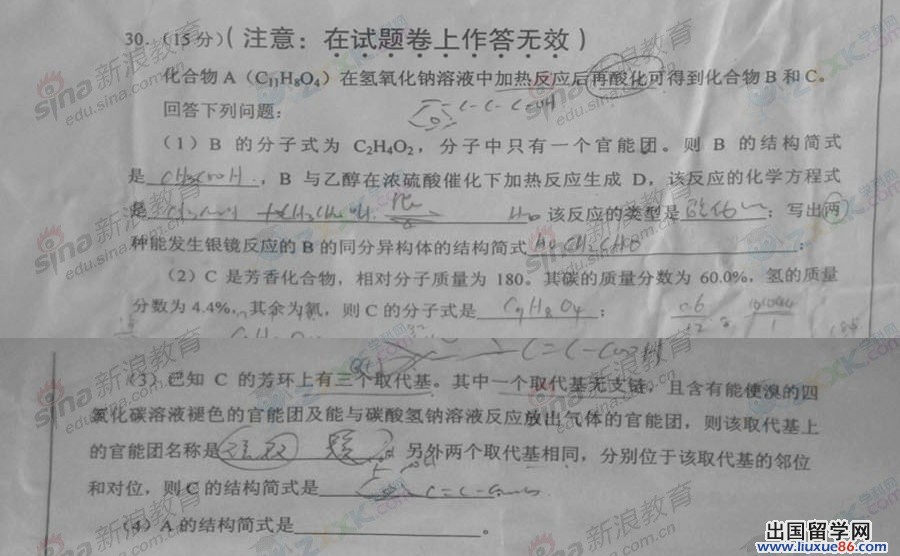 30.（15分）（注意：在试题卷上作答无效）
化合物A（C₁₁H₈O₄）在氢氧化钠溶液中加热反应后再酸化可得到化合物B和C。
回答下列问题：
（1）B 的分子式为 C₂H₄O₂，分子中只有一个官能团。则 B 的结构简式
是 CH₃COOH，B 与乙醇在浓硫酸催化下加热反应生成 D，该反应的化学方程式
是 H₂O 该反应的类型是；写出两
种能发生银镜反应的 B 的同分异构体的结构简式 HOCH₂CHO；
（2）C 是芳香化合物，相对分子质量为 180。其碳的质量分数为 60.0%，氢的质量
分数为 4.4%，其余为氧，则 C 的分子式是 C₉H₈O₄；
（3）已知 C 的芳环上有三个取代基。其中一个取代基无支链，且含有能使溴的四
氯化碳溶液褪色的官能团及能与碳酸氢钠溶液反应放出气体的官能团，则该取代基上
的官能团名称是，另外两个取代基相同，分别位于该取代基的邻位
和对位，则 C 的结构简式是
（4）A 的结构简式是。
sina 新浪教育
edu.sina.com.cn
出国留学网
www.liuxue86.com